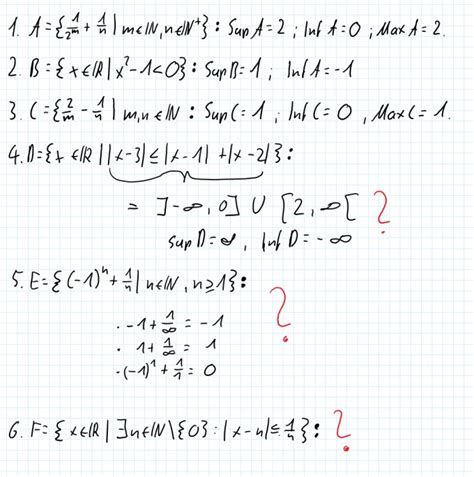 1. A={1/2^m + 1/n | m∈ℕ, n∈ℕ⁺} : Sup A=2 ; Inf A=0 ; Max A=2.
2. B={x∈ℝ | x²-1<0} : Sup B=1 ; Inf A=-1
3. C={2/m - 1/n | m,n∈ℕ : Sup C=1 ; Inf C=0 , Max C=1.
4. D={x∈ℝ | |x-3|≤|x-1|+|x-2|} :
= ]-∞,0] ∪ [2,∞[ ?
sup D=∞, Inf D=-∞
5. E={(-1)^n + 1/n | n∈ℕ, n≥1} : ?
· -1+1/∞ = -1
· 1+1/∞ = 1
· (-1)^1 + 1/1 = 0
6. F={x∈ℝ | ∃n∈ℕ\{0} : |x-n|≤1/n} : ?